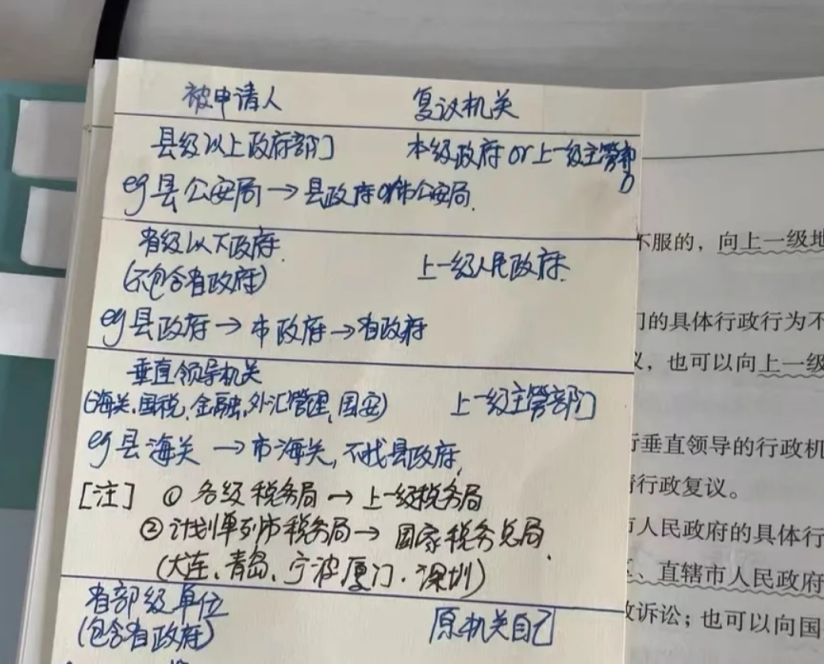 被申请人 复议机关
县级以上政府部门 本级政府 or 上一级主管部门
eg 县公安局 → 县政府 or 市公安局.
省级以下政府.
(不包含省政府) 上一级人民政府.
eg 县政府 → 市政府 → 省政府
垂直领导机关
(海关、国税、金融、外汇管理、国安) 上一级主管部门
eg 县海关 → 市海关, 不找县政府,
[注] ① 各级税务局 → 上一级税务局
② 计划单列市税务局 → 国家税务总局.
(大连、青岛、宁波、厦门、深圳)
省部级单位
(包含省政府) 原机关自己
不服的，向上一级地
门的具体行政行为不
议，也可以向上一级
行垂直领导的行政机
请行政复议。
人民政府的具体行
、直辖市人民政府
政诉讼；也可以向国